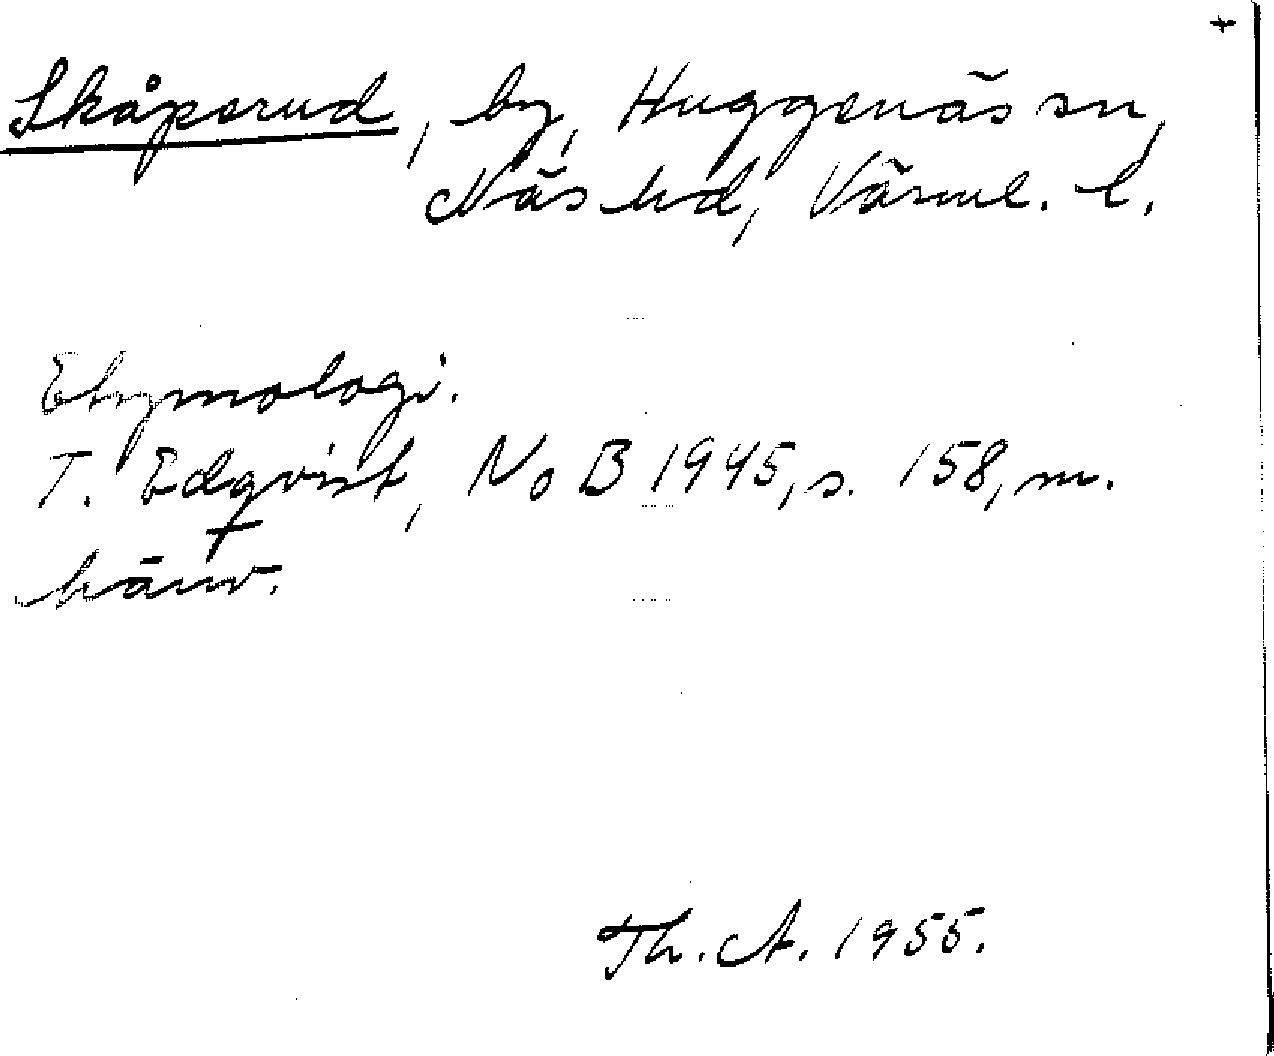 +
Skåperud, by, Huggenäs sn,
Näs hd, Värml. l.
Etymologi.
T. Edqvist, NoB 1945, s. 158, m.
hänv.
Th. A. 1955.